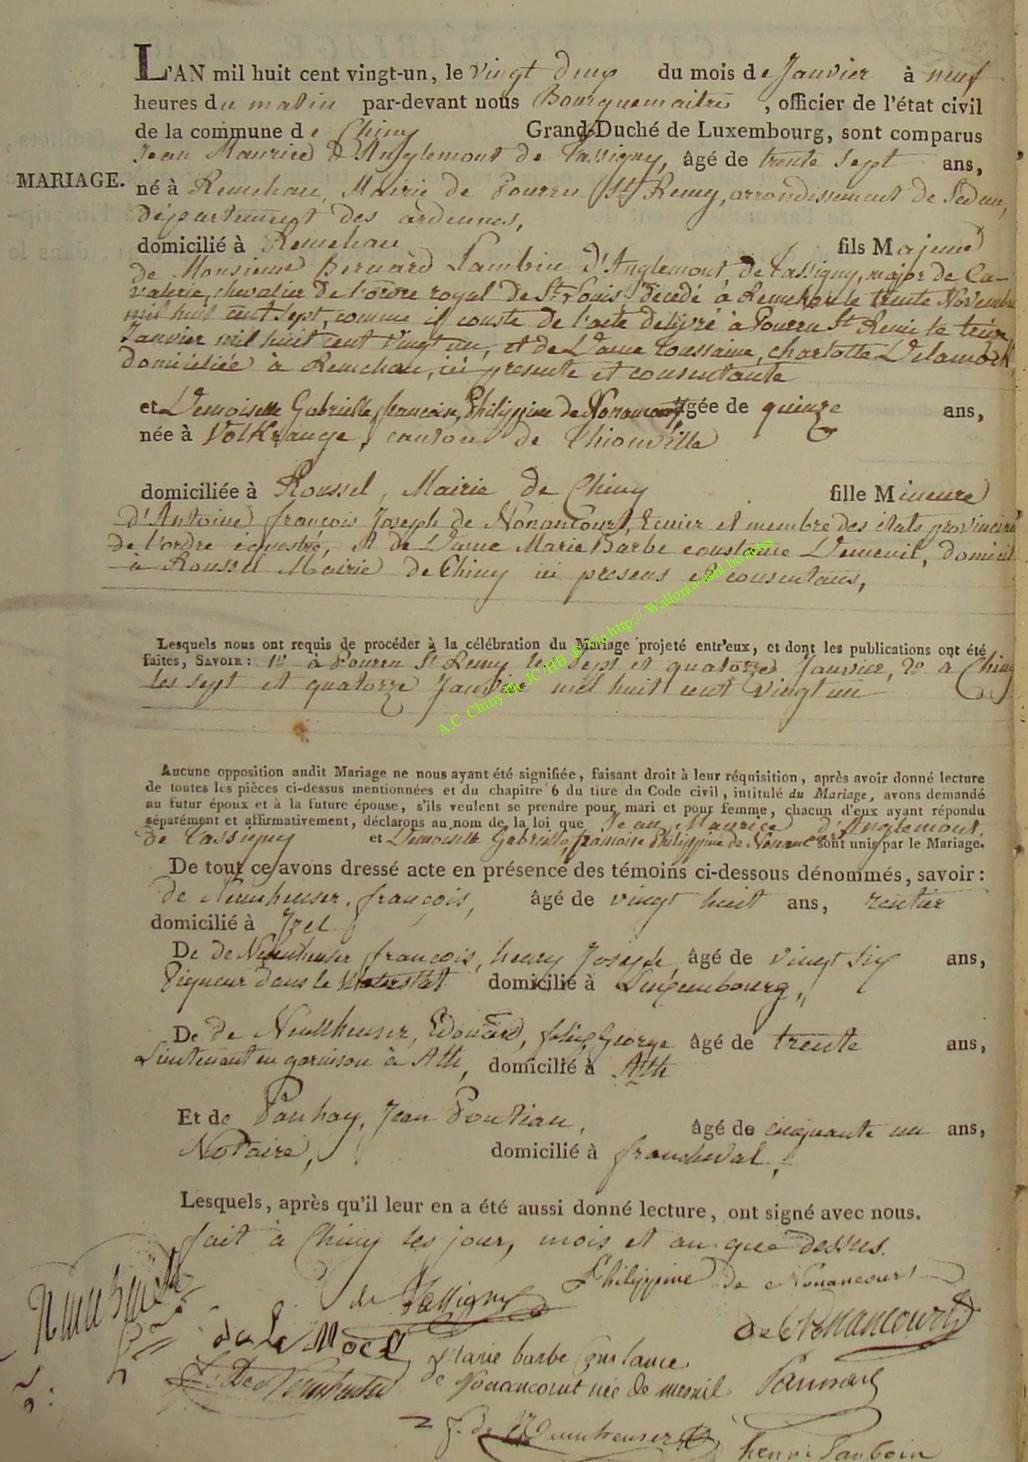 L'AN mil huit cent vingt-un, le vingt deux du mois de Janvier à neuf
heures du matin par-devant nous Bourguemaitre, officier de l'état civil
de la commune de Chiny Grand-Duché de Luxembourg, sont comparus
Jean Maurice d'Anglemont de Tassigny, âgé de trente sept ans,
MARIAGE.
né à Remehan, Mairie de Pourru St Remy, arrondissement de Sedan,
département des ardennes,
domicilié à Remehan fils Majeur
de Monsieur Bernard Lambin d'Anglemont de Tassigny, major de Ca-
valerie, chevalier de l'ordre royal de St Louis décedé à Remehan le trente Novembre
mil huit cent sept, comme il conste de l'acte delivré à Pourru St Remi le treize
Janvier mil huit cent vingt un, et de Dame Toussaine, charlotte Delamock
domiciliée à Remehan, ici presente et consentante
et Demoiselle Gabrielle, francoise, Philippine de Nonancourt, âgée de quinze ans,
née à Volkrange, canton de Thionville
domiciliée à Roussel, Mairie de Chiny fille Mineure
d'Antoine françois Joseph de Nonancourt, Rentier et membre des états provinciaux
de l'ordre équestre, et de Dame Marie Barbe constance Demenil, domicil
à Roussel Mairie de Chiny ici presens et consentans,
A C. Chiny Ph. JC HH @ Via http:// Wallonia-asbl be/access
Lesquels nous ont requis de procéder à la célébration du Mariage projeté entr'eux, et dont les publications ont été
faites, SAVOIR: 1º à Pourru St Remy les sept et quatorze Janvier, 2º à Chiny
les sept et quatorze Janvier mil huit cent vingt un
Aucune opposition audit Mariage ne nous ayant été signifiée, faisant droit à leur réquisition, après avoir donné lecture
de toutes les pièces ci-dessus mentionnées et du chapitre 6 du titre du Code civil, intitulé du Mariage, avons demandé
au futur époux et à la future épouse, s'ils veulent se prendre pour mari et pour femme, chacun d'eux ayant répondu
séparément et affirmativement, déclarons au nom de la loi que Jean Maurice d'Anglemont
de Tassigny et Demoiselle Gabrielle francoise Philippine de Nonancourt sont unis par le Mariage.
De tout ce avons dressé acte en présence des témoins ci-dessous dénommés, savoir:
de Neunheuser, françois, âgé de vingt huit ans, rentier
domicilié à Izel
De de Neunheuser françois, henry Joseph âgé de vingt six ans,
Piqueur dans le Waterstat domicilié à Luxembourg,
De de Neunheuser, Edouard, félix George âgé de trente ans,
Lieutenant en garnison à Ath, domicilié à Ath
Et de Pauhay, Jean Pontian, âgé de cinquante un ans,
Notaire, domicilié à francheval,
Lesquels, après qu'il leur en a été aussi donné lecture, ont signé avec nous.
fait à Chiny les jour, mois et an que dessus.
Philippine de Nonancourt
de Tassigny
de Nonancourt
de La Mock
Marie barbe Constance
de Nonancourt née de mesnil
f. de Neunheuser
henri